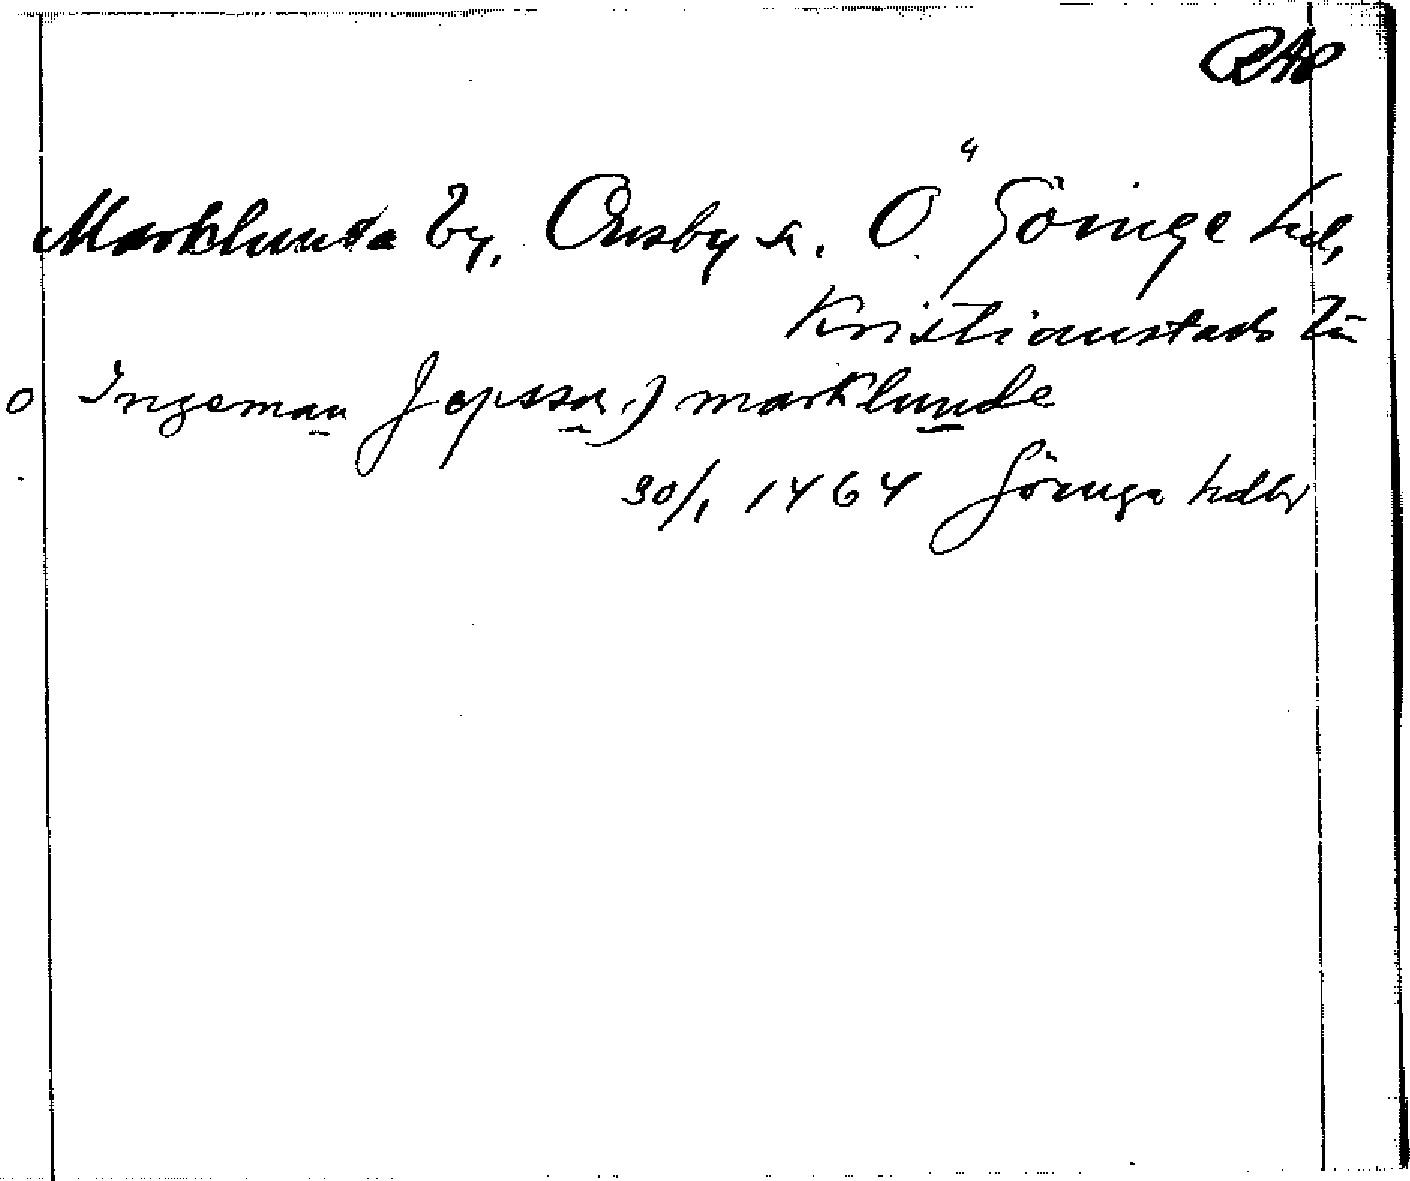 Marklunda by, Ousby sn. Ö. Göinge hd,
Kristianstads län
o Ingeman Jepssøn j marklunde
30/1 1464 Göinge hdbr